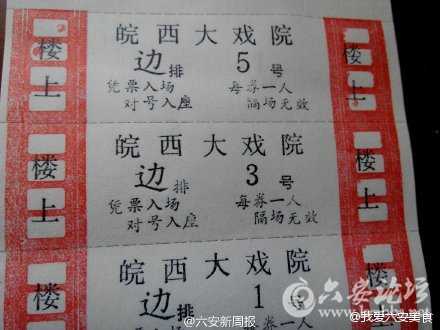 皖西大戏院
楼上
边排 5号
楼上
凭票入场 每券一人
对号入座 隔场无效
皖西大戏院
楼上
边排 3号
楼上
凭票入场 每券一人
对号入座 隔场无效
皖西大戏院
楼
边排 1号
楼
六安论坛
@六安新闻报
@我爱六安美食